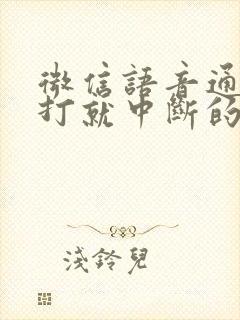 微信語音通
打就中斷的
淺鈴兒